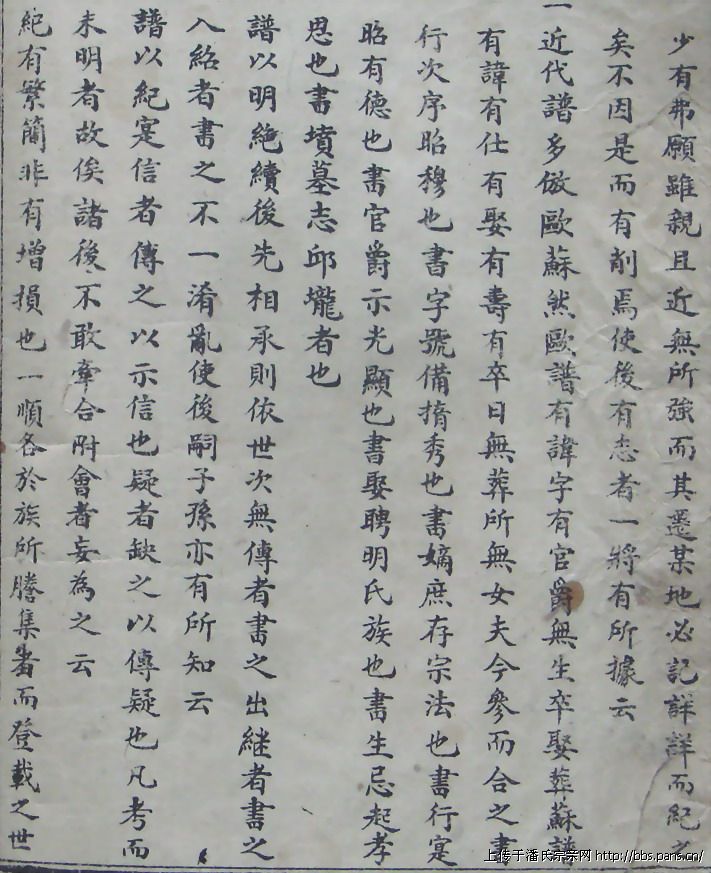 少有弗願雖親且近無所強而其遷某地必記詳詳而紀之
矣不因是而有削焉使後有志者一將有所據云
一近代譜多倣歐蘇然歐譜有諱字有官爵無生卒娶葬蘇譜
有諱有仕有娶有壽有卒日無葬所無女夫今參而合之書
行次序昭穆也書字號備揹秀也書嫡庶存宗法也書行寔
昭有德也書官爵示光顯也書娶聘明氏族也書生忌起孝
思也書墳墓志邱壠者也
譜以明絶續後先相承則依世次無傳者書之出継者書之
入紹者書之不一淆亂使後嗣子孫亦有所知云
譜以紀寔信者傳之以示信也疑者缺之以傳疑也凡考而
未明者故俟諸後不敢牽合附會者妄為之云
紀有繁簡非有增損也一順各於族所謄集畨而登載之世
上传于潘氏宗亲网 http://bbs.pans.cn/